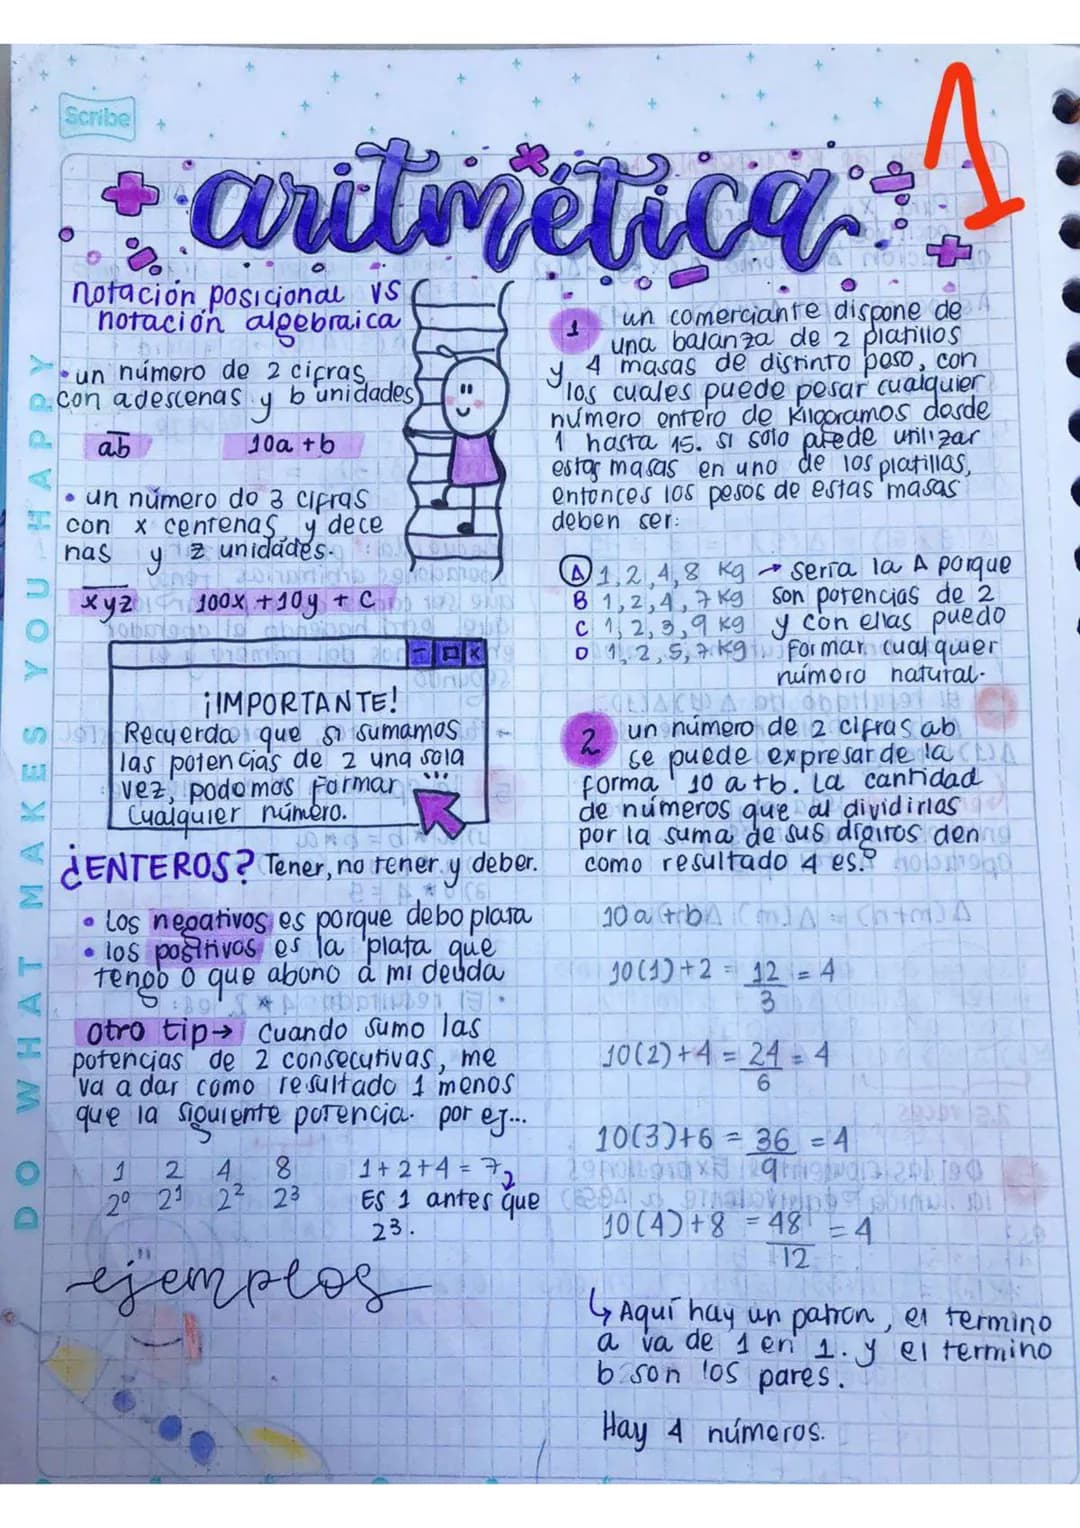 Scribe
1
aritmética
DO WHAT MAKES YOU HAPPY
notación posicional VS
notación algebraica
• un número de 2 cifras
con a descenas y b unidades
ab 10a + b
• un número do 3 cifras
con x centenas y dece
nas y z unidades.
xyz 100x + 10y + c
¡IMPORTANTE!
Recuerda que si sumamos
las potencias de 2 una sola
vez, podomos Formar
Cualquier número.
¿ENTEROS? Tener, no tener y deber.
• Los negativos es porque debo plata
• los positivos es la plata que
tengo o que abono a mi deuda
otro tip → cuando sumo las
potencias de 2 consecutivas, me
va a dar como resultado 1 menos
que la siguiente potencia. por ej...
1 2 4 8 1+2+4 = 7,
2⁰ 2¹ 2² 2³ ES 1 antes que
2³.
ejemplos
1 un comerciante dispone de
una balanza de 2 platillos
y 4 masas de distinto peso, con
los cuales puede pesar cualquier
número entero de Kilogramos desde
1 hasta 15. si solo puede utilizar
estas masas en uno de los platillas,
entonces los pesos de estas masas
deben ser:
A 1, 2, 4, 8 Kg → sería la A porque
B 1, 2, 4, 7 Kg son potencias de 2
C 1, 2, 3, 9 Kg y con ellas puedo
D 1, 2, 5, 7 Kg Formar cualquier
número natural.
2 un número de 2 cifras ab
se puede expresar de la
forma 10 a + b. La cantidad
de números que al dividirlas
por la suma de sus dígitos den
como resultado 4 es?
10 a + b
10(1)+2 = 12 = 4
3
10(2)+4 = 24 = 4
6
10(3)+6 = 36 = 4
9
10(4)+8 = 48 = 4
12
↳ Aquí hay un patron, el termino
a va de 1 en 1. y el termino
b son los pares.
Hay 4 números.